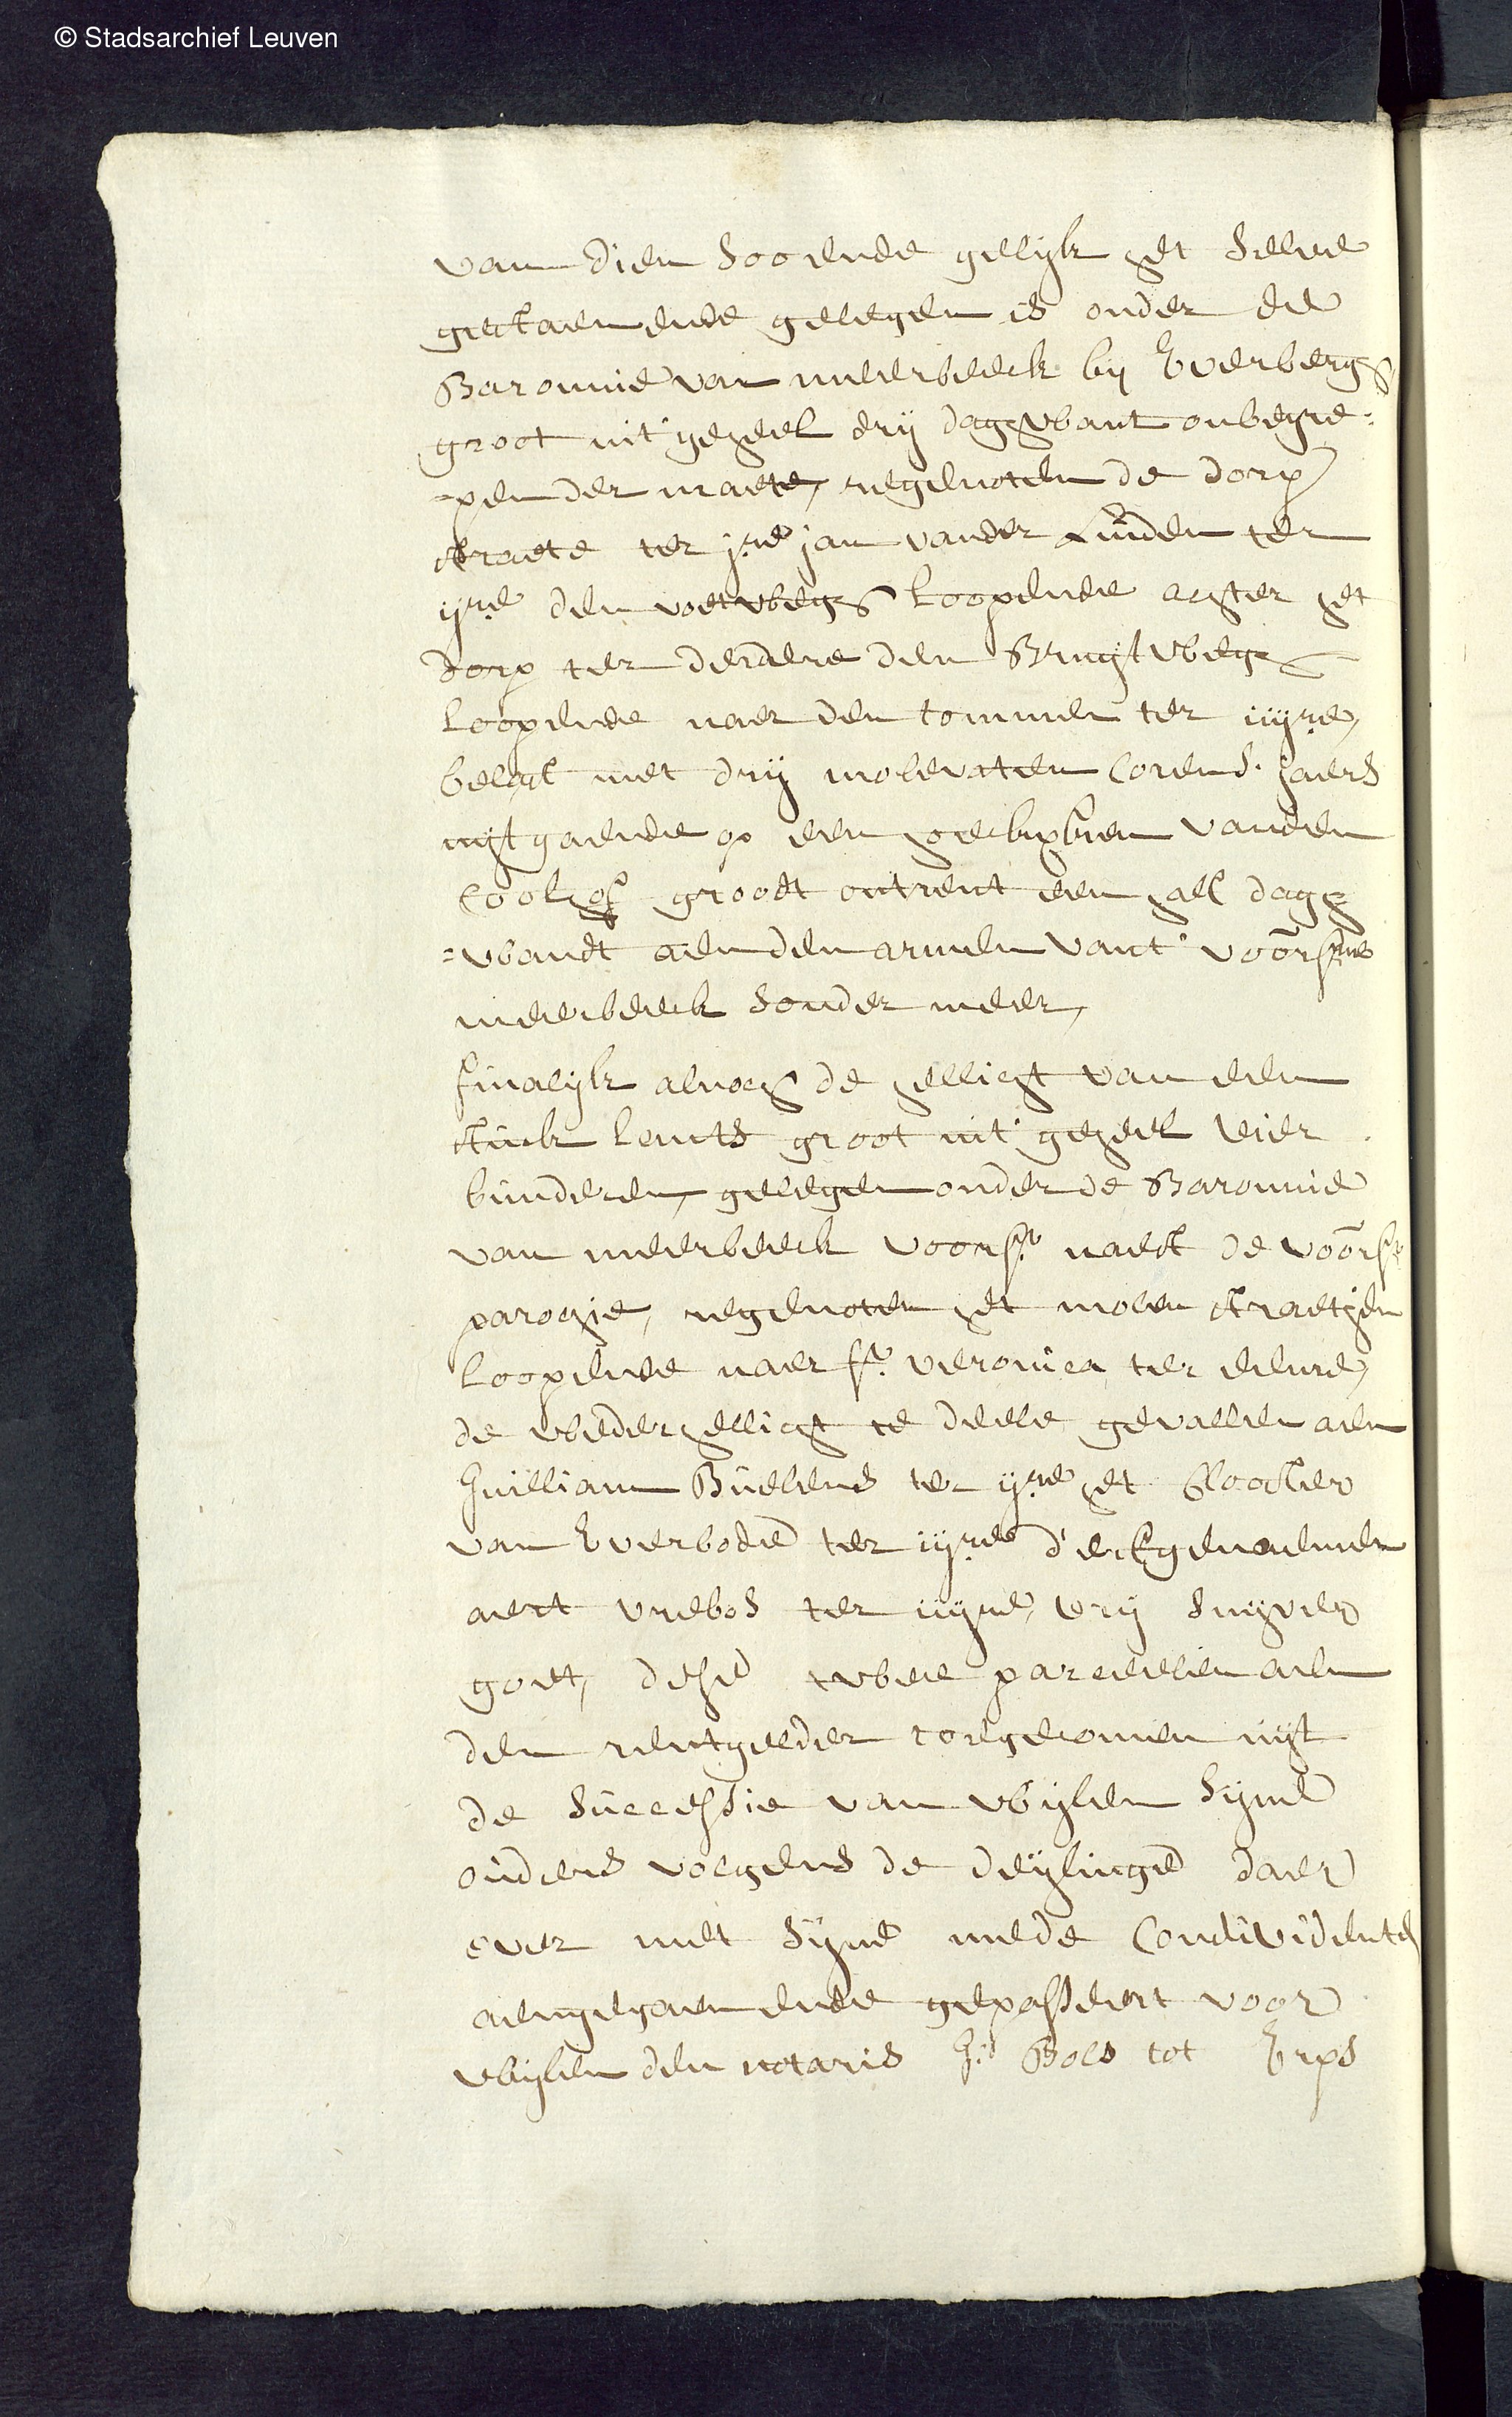 © Stadsarchief Leuven
van dien soo ende gelijk het selve
gestaen ende gelegen is onder de
Baronnie van meerbeeck bij Everbergh
groot int' geheel drij daghwant onbegre=
=pen der maete, regenoten de dorp
straete ter j.re jan vander Linden ter
ij.re den voetwegh loopende achter het
dorp ter derdere den Bruijlwegh
loopende naer den tommen ter iiij.re,
belast met drij molevaten corens jaers
uijtgaende op een geluchten vanden
coolhof groodt ontrent een half dagh
=wandt aen den armen vant' voors.
meerbeeck sonder meer,
finalijk alnoch de hellicht van een
stuck lants groot int' geheel vier
bunderen, gelegen onder de Baronnie
van meerbeeck voors. naest de voors.
parochie, regenoten het molen straetjen
loopende naer s.te veronica ter eenre,
de wederhellicht te deele gevallen aen
Guilliam Buelens ter ij.re het Clooster
van Everbode ter iij.re d'erfgenaemen
aert vrebos ter iiij.re, vrij suijver
goet, dese twee parceelen aen
den rentgelder toegecomen uijt
de successie van wijlen sijne
ouders volgens de deijlinge daer
over met sijne mede condividenten
aengegaen ende gepasseert voor
wijlen den notaris G.s Bols tot Erps